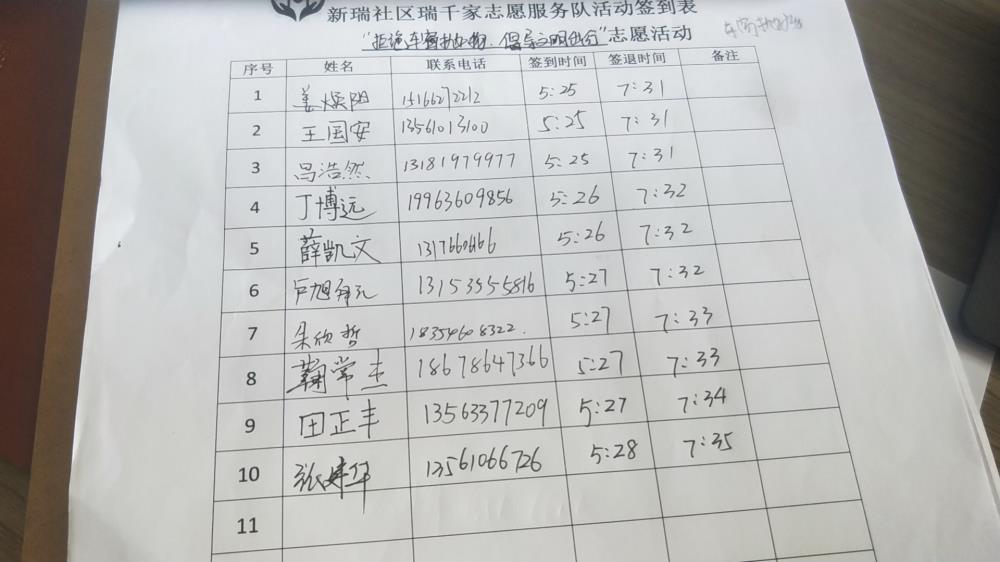 新瑞社区瑞千家志愿服务队活动签到表
"拒绝车窗抛物，倡导文明出行"志愿活动
车窗抛物
序号 姓名 联系电话 签到时间 签退时间 备注
1 姜焕阳 15166272212 5:25 7:31
2 王国安 13561013100 5:25 7:31
3 吕浩然 13181979977 5:25 7:31
4 丁博远 19963609856 5:26 7:32
5 薛凯文 5:26 7:32
6 卢旭 13153555816 5:27 7:32
7 朱欣哲 18354608322. 5:27 7:33
8 鞠常杰 18678647366 5:27 7:33
9 田正丰 13563377209 5:27 7:34
10 张建华 13561066726 5:28 7:35
11